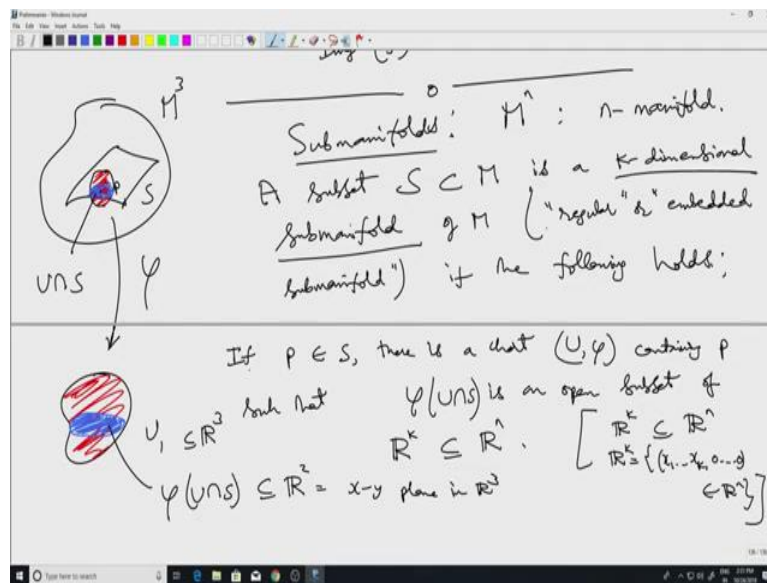 Preliminaries - Windows Journal
File Edit View Insert Actions Tools Help
B
Img (
M³
Submanifolds : Mⁿ : n-manifold.
A subset S ⊂ M is a k-dimensional
submanifold of M ("regular" or "embedded
submanifold") if the following holds;
P
S
U∩S
φ
If p ∈ S, there is a chart (U, φ) containing p
such that φ(U∩S) is an open subset of
U₁ ⊆ ℝ³
ℝᵏ ⊆ ℝⁿ.
[ ℝᵏ ⊆ ℝⁿ
ℝᵏ = {(x₁...x_k, 0...0)
∈ ℝⁿ} ]
φ(U∩S) ⊆ ℝ² = x-y plane in ℝ³
18 / 18
Type here to search